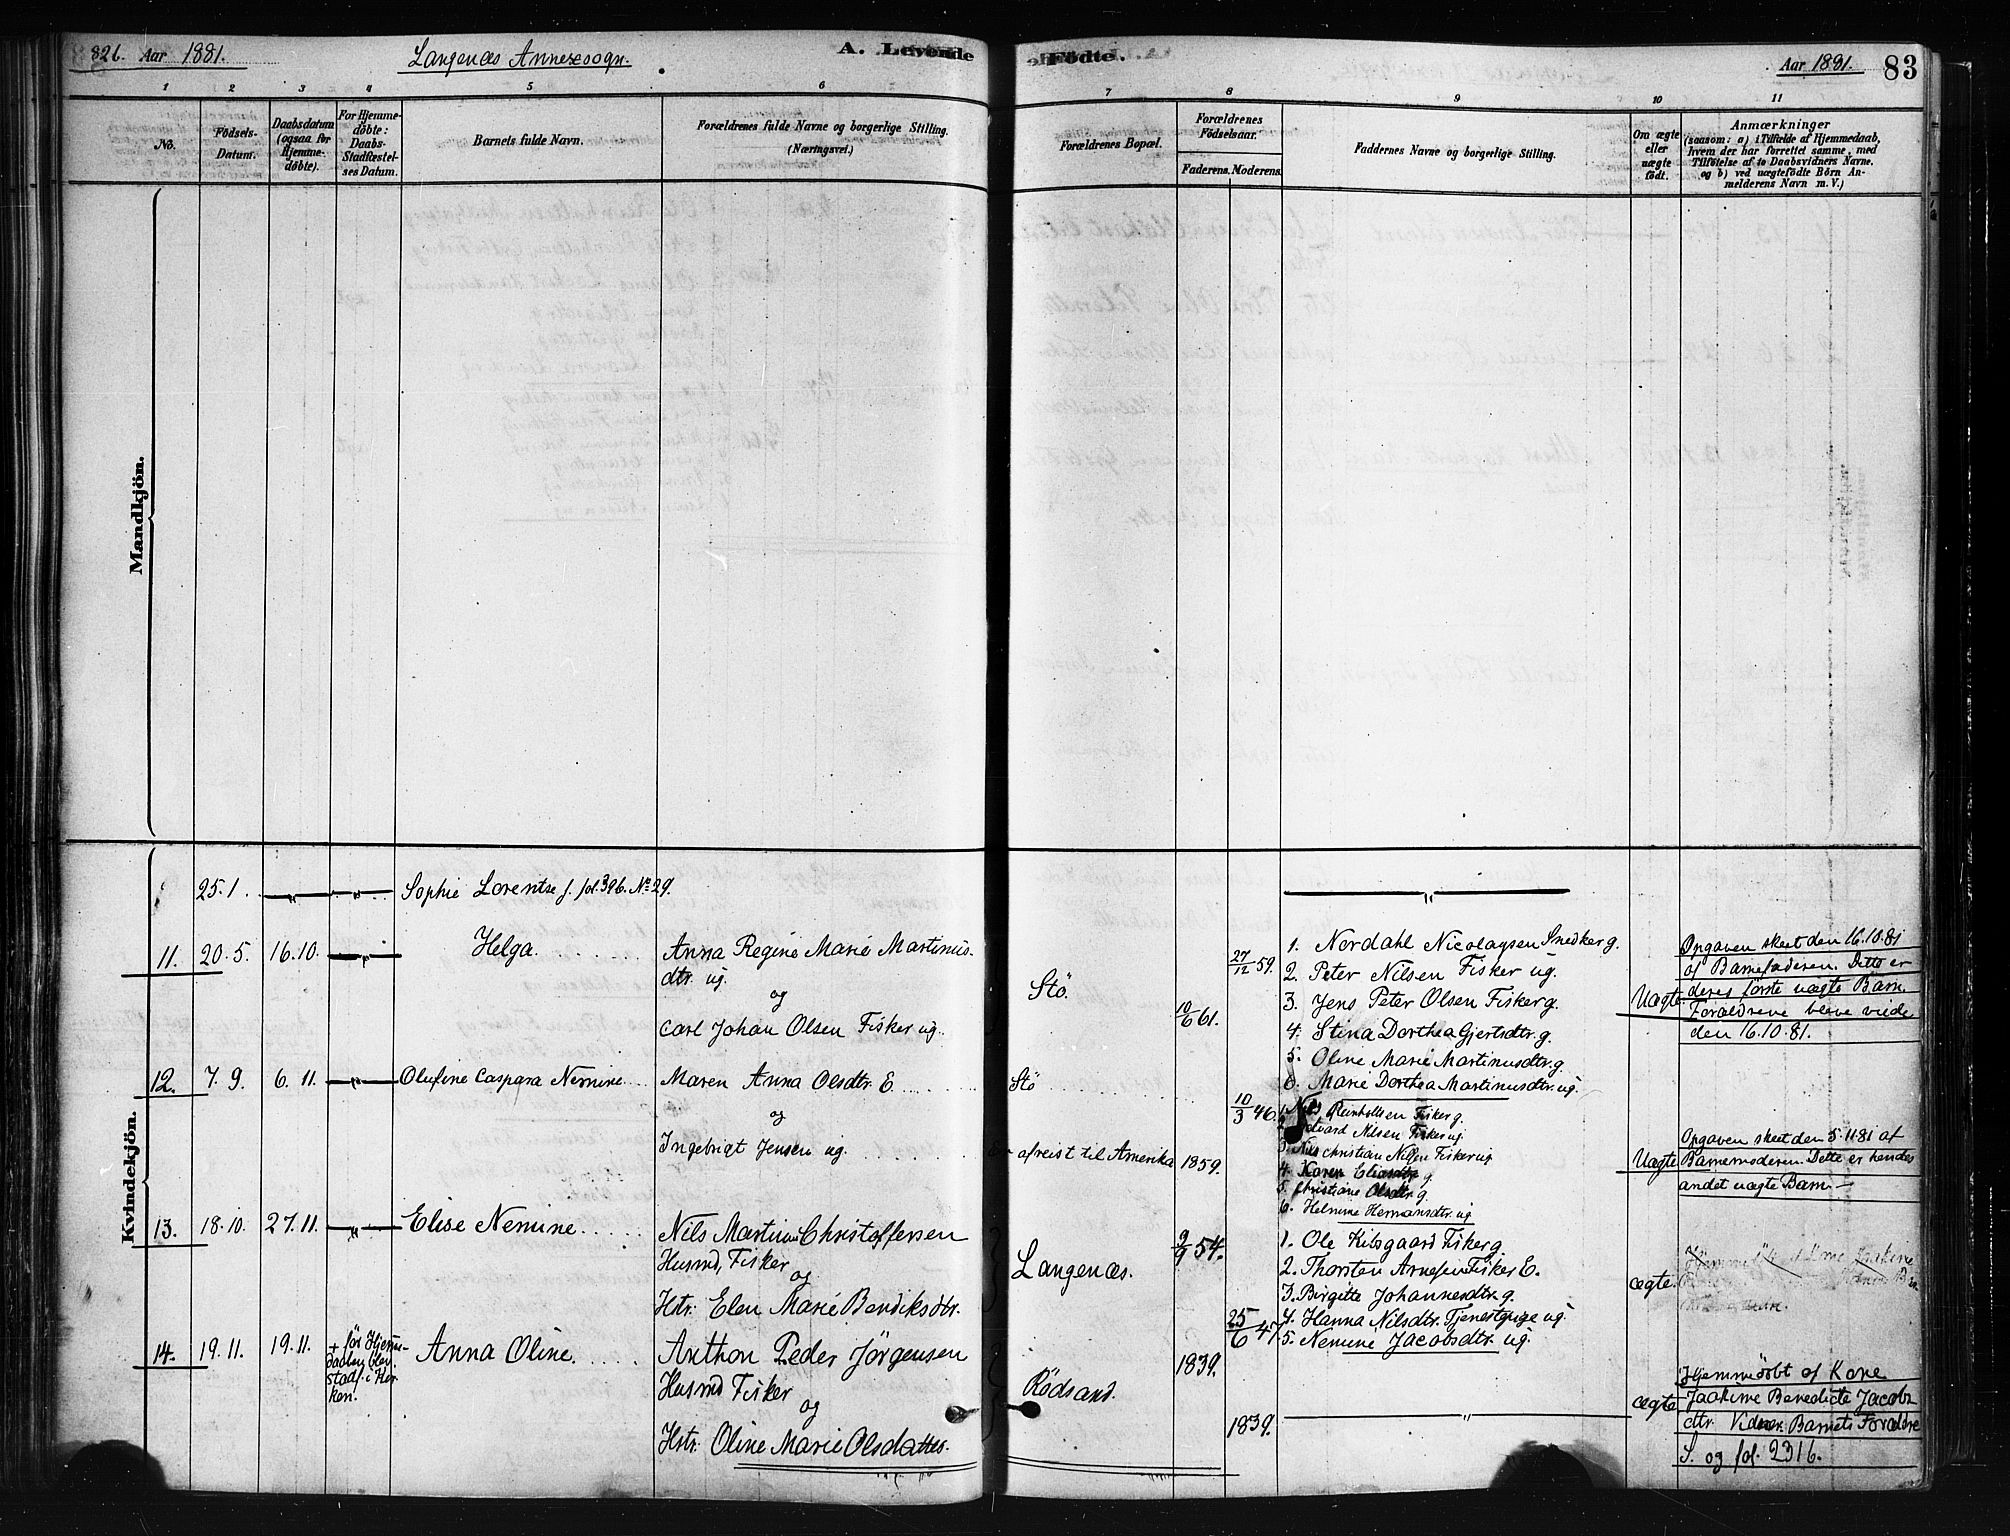 82b. Aar 1881. Langenæs Annexsogn. A. Levende
Födte. Aar 1881. 83
1 2 3 4 5 6 7 8 9 10 11
No.
Födsels-
Datum.
Daabsdatum
(ogsaa for
Hjemme-
döbte).
For Hjemme-
döbte:
Daabs-
Stadfæstel-
ses Datum.
Barnets fulde Navn.
Forældrenes fulde Navne og borgerlige Stilling.
(Næringsvei.)
Forældrenes Bopæl.
Forældrenes
Födselsaar.
Faderens. Moderens.
Faddernes Navne og borgerlige Stilling.
Om ægte
eller
uægte
födt.
Anmærkninger
(saasom: a) i Tilfælde af Hjemmedaab,
hvem der har forrettet samme, med
Tilföielse af to Daabsvidners Navne.
og b) ved uægtefödte Börn An-
melderens Navn m.V.)
Mandkjön.
Kvindekjön.
25.1. — " — — " — Sophie Lorentse f. fol. 39b. No 29. — " —
11. 20.5. 16.10. — " — Helga.
Anna Regine Marie Martinus-
dtr. ug.
og
Carl Johan Olsen Fisker ug.
Stö.
10/6 61.
27/12 59.
1. Nordahl Nicolaysen Snedker g.
2. Peter Nilsen Fisker ug.
3. Jens Peter Olsen Fisker g.
4. Stina Dorthea Gjertsdtr. g.
5. Oline Marie Martinusdtr. g.
6. Marie Dorthea Martinusdtr. ug.
Uægte.
Opgaven skeet den 16.10.81
af Barnefaderen. Dette er
deres förste uægte Barn.
Forældrene bleve viede
den 16.10.81.
12. 7.9. 6.11. — " — Olufine Caspara Nemine
Maren Anna Olsdtr. E.
og
Ingebrigt Jensen ug.
Stö
Er afreist til Amerika
1859.
10/3 46.
1. Nils Reinholtsen Fisker g.
2. Edvard Nilsen Fisker ug.
3. Nils Christian Nilsen Fisker ug
4. Karen Eliasdtr. g
5. Christiane Olsdtr. g.
6. Helmine Hemansdtr. ug
Uægte
Opgaven skeet den 5.11.81 af
Barnemoderen. Dette er hendes
andet uægte Barn. —
13. 18.10. 27.11. — " — Elise Nemine.
Nils Martinus Christoffersen
Husmd, Fisker
og
Hstr. Elen Marie Bendiksdtr.
Langenæs.
9/9 54.
25/6 47.
1. Ole Kibsgaard Fisker g
2. Thorsten Arnesen Fisker E.
3. Birgitte Johannesdtr. g.
4. Hanna Nilsdtr. Tjenestpige ug.
5. Nemine Jacobsdtr. ug.
ægte.
14. 19.11. 19.11.
+ för Hjemme-
daaben blev
stadf. i Kir-
ken.
Anna Oline.
Anthon Peder Jörgensen
Husmd Fisker
og
Hstr. Oline Marie Olsdatter.
Rödsand.
1839.
1839.
— " —
ægte
Hjemmedöbt af Kone
Joakime Benedicte Jacobs
dtr. Vidner: Barnets Forældre
S. og fol. 231b.